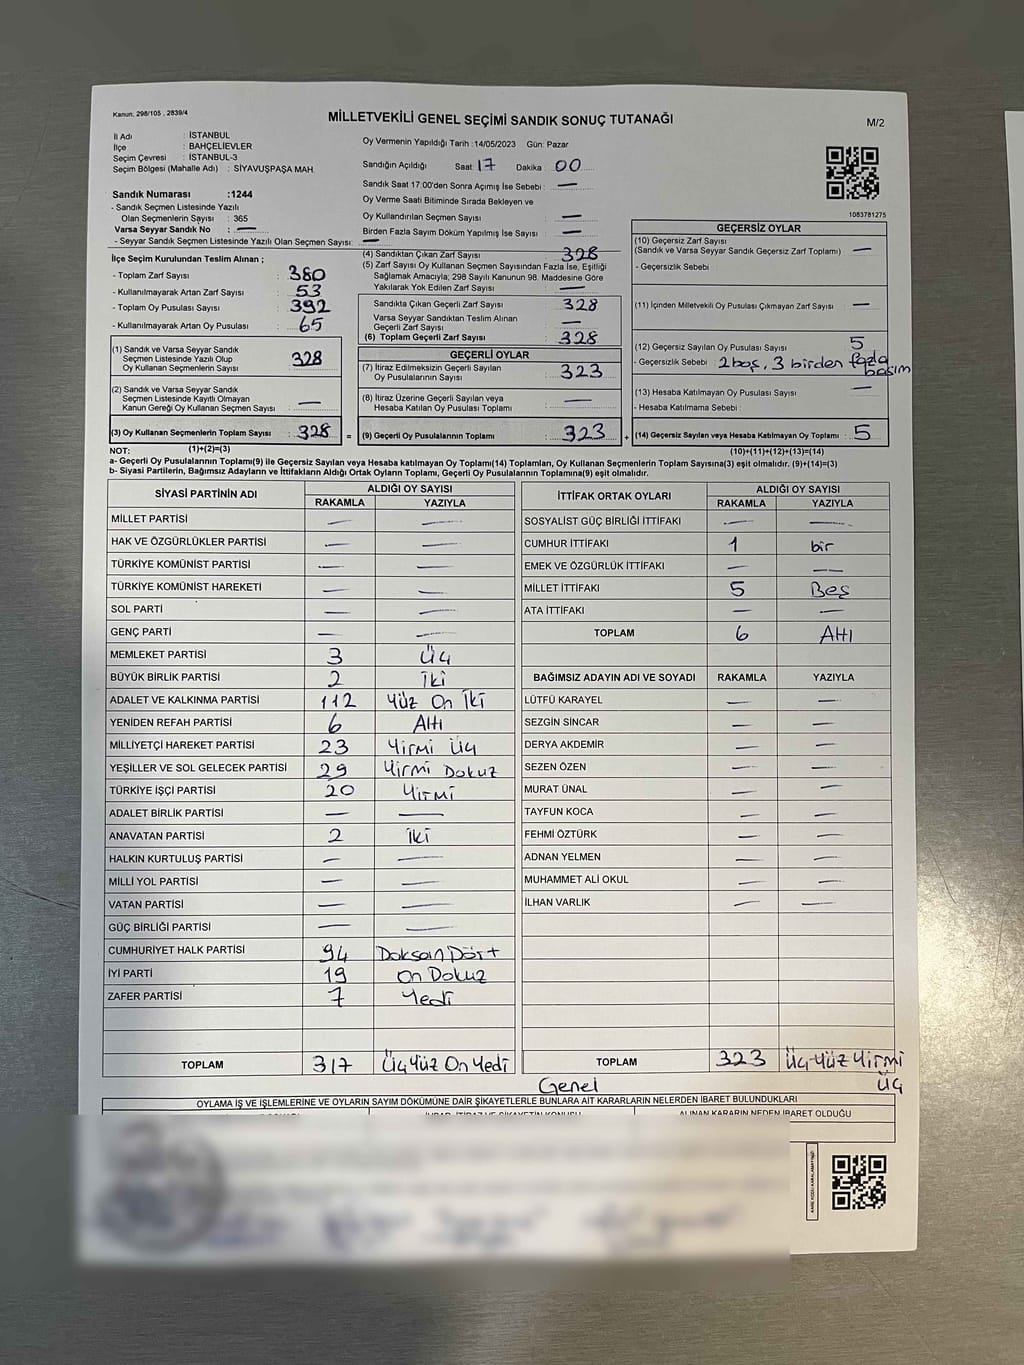 Kanun, 298/105 , 2839/4
MİLLETVEKİLİ GENEL SEÇİMİ SANDIK SONUÇ TUTANAĞI
M/2
İl Adı : İSTANBUL
İlçe : BAHÇELİEVLER
Seçim Çevresi : İSTANBUL-3
Seçim Bölgesi (Mahalle Adı) : SİYAVUŞPAŞA MAH.
Sandık Numarası :1244
- Sandık Seçmen Listesinde Yazılı
Olan Seçmenlerin Sayısı : 365
Varsa Seyyar Sandık No : —
- Seyyar Sandık Seçmen Listesinde Yazılı Olan Seçmen Sayısı: —
Oy Vermenin Yapıldığı Tarih :14/05/2023 Gün: Pazar
Sandığın Açıldığı Saat: 17 Dakika : 00
Sandık Saat 17.00'den Sonra Açımış İse Sebebi : —
Oy Verme Saati Bitiminde Sırada Bekleyen ve
Oy Kullandırılan Seçmen Sayısı —
Birden Fazla Sayım Döküm Yapılmış İse Sayısı : —
1083781275
İlçe Seçim Kurulundan Teslim Alınan ;
- Toplam Zarf Sayısı : 380
- Kullanılmayarak Artan Zarf Sayısı : 53
- Toplam Oy Pusulası Sayısı : 392
- Kullanılmayarak Artan Oy Pusulası : 65
(1) Sandık ve Varsa Seyyar Sandık
Seçmen Listesinde Yazılı Olup
Oy Kullanan Seçmenlerin Sayısı : 328
(2) Sandık ve Varsa Seyyar Sandık
Seçmen Listesinde Kayıtlı Olmayan
Kanun Gereği Oy Kullanan Seçmen Sayısı : —
(3) Oy Kullanan Seçmenlerin Toplam Sayısı : 328 =
(4) Sandıktan Çıkan Zarf Sayısı : 328
(5) Zarf Sayısı Oy Kullanan Seçmen Sayısından Fazla İse, Eşitliği
Sağlamak Amacıyla; 298 Sayılı Kanunun 98. Maddesine Göre
Yakılarak Yok Edilen Zarf Sayısı : —
Sandıkta Çıkan Geçerli Zarf Sayısı : 328
Varsa Seyyar Sandıktan Teslim Alınan
Geçerli Zarf Sayısı : —
(6) Toplam Geçerli Zarf Sayısı : 328
GEÇERLİ OYLAR
(7) İtiraz Edilmeksizin Geçerli Sayılan
Oy Pusulalarının Sayısı : 323
(8) İtiraz Üzerine Geçerli Sayılan veya
Hesaba Katılan Oy Pusulası Toplamı : —
(9) Geçerli Oy Pusulalarının Toplamı : 323 +
GEÇERSİZ OYLAR
(10) Geçersiz Zarf Sayısı
(Sandık ve Varsa Seyyar Sandık Geçersiz Zarf Toplamı) : —
- Geçersizlik Sebebi :
(11) İçinden Milletvekili Oy Pusulası Çıkmayan Zarf Sayısı : —
(12) Geçersiz Sayılan Oy Pusulası Sayısı : 5
- Geçersizlik Sebebi : 2 boş, 3 birden fazla
basım
(13) Hesaba Katılmayan Oy Pusulası Sayısı : —
- Hesaba Katılmama Sebebi :
(14) Geçersiz Sayılan veya Hesaba Katılmayan Oy Toplamı : 5
NOT: (1)+(2)=(3) (10)+(11)+(12)+(13)=(14)
a- Geçerli Oy Pusulalarının Toplamı(9) ile Geçersiz Sayılan veya Hesaba katılmayan Oy Toplamı(14) Toplamları, Oy Kullanan Seçmenlerin Toplam Sayısına(3) eşit olmalıdır. (9)+(14)=(3)
b- Siyasi Partilerin, Bağımsız Adayların ve İttifakların Aldığı Ortak Oyların Toplamı, Geçerli Oy Pusulalarının Toplamına(9) eşit olmalıdır.
SİYASİ PARTİNİN ADI ALDIĞI OY SAYISI
RAKAMLA YAZIYLA
MİLLET PARTİSİ — —
HAK VE ÖZGÜRLÜKLER PARTİSİ — —
TÜRKİYE KOMÜNİST PARTİSİ — —
TÜRKİYE KOMÜNİST HAREKETİ — —
SOL PARTİ — —
GENÇ PARTİ — —
MEMLEKET PARTİSİ 3 Üç
BÜYÜK BİRLİK PARTİSİ 2 İki
ADALET VE KALKINMA PARTİSİ 112 Yüz On İki
YENİDEN REFAH PARTİSİ 6 Altı
MİLLİYETÇİ HAREKET PARTİSİ 23 Yirmi Üç
YEŞİLLER VE SOL GELECEK PARTİSİ 29 Yirmi Dokuz
TÜRKİYE İŞÇİ PARTİSİ 20 Yirmi
ADALET BİRLİK PARTİSİ — —
ANAVATAN PARTİSİ 2 İki
HALKIN KURTULUŞ PARTİSİ — —
MİLLİ YOL PARTİSİ — —
VATAN PARTİSİ — —
GÜÇ BİRLİĞİ PARTİSİ — —
CUMHURİYET HALK PARTİSİ 94 Doksan Dört
İYİ PARTİ 19 On Dokuz
ZAFER PARTİSİ 7 Yedi
TOPLAM 317 Üç Yüz On Yedi
İTTİFAK ORTAK OYLARI ALDIĞI OY SAYISI
RAKAMLA YAZIYLA
SOSYALİST GÜÇ BİRLİĞİ İTTİFAKI — —
CUMHUR İTTİFAKI 1 bir
EMEK VE ÖZGÜRLÜK İTTİFAKI — —
MİLLET İTTİFAKI 5 Beş
ATA İTTİFAKI — —
TOPLAM 6 Altı
BAĞIMSIZ ADAYIN ADI VE SOYADI RAKAMLA YAZIYLA
LÜTFÜ KARAYEL — —
SEZGİN SİNCAR — —
DERYA AKDEMİR — —
SEZEN ÖZEN — —
MURAT ÜNAL — —
TAYFUN KOCA — —
FEHMİ ÖZTÜRK — —
ADNAN YELMEN — —
MUHAMMET ALİ OKUL — —
İLHAN VARLIK — —
TOPLAM 323 Üç Yüz Yirmi
Genel Üç
OYLAMA İŞ VE İŞLEMLERİNE VE OYLARIN SAYIM DÖKÜMÜNE DAİR ŞİKAYETLERLE BUNLARA AİT KARARLARIN NELERDEN İBARET BULUNDUKLARI
İHBAR, İTİRAZ VE ŞİKAYETİN KONUSU ALINAN KARARIN NEDEN İBARET OLDUĞU